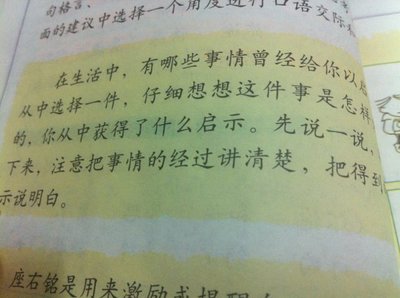 句格言、
面的建议中选择一个角度进行口语交际
在生活中，有哪些事情曾经给你以
从中选择一件，仔细想想这件事是怎样
的，你从中获得了什么启示。先说一说，
下来，注意把事情的经过讲清楚，把得到
示说明白。
座右铭是用来激励或提醒自